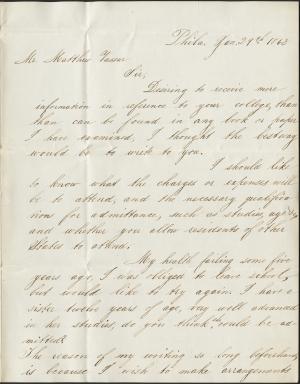 Phila. Jan. 29th 1863
Mr. Matthew Vassar
Sir,
Desiring to receive more
information in reference to your college, than
than can be found in any book or paper
I have examined, I thought the best way
would be to write to you.
I should like
to know what the charges or expenses will
be to attend, and the necessary qualifica
tions for admittance, such as studies, age &c
and whether you allow residents of other
States to attend.
My health failing some five
years ago, I was obliged to leave school,
but would like to try again. I have a
sister twelve years of age, very well advanced
in her studies, do you think would be ad-
mitted?
The reason of my writing so long beforehand
is because I wish to make arrangements